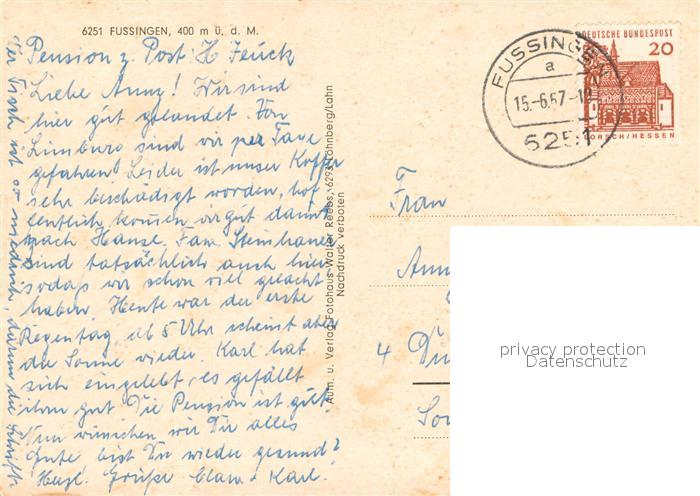 6251 FUSSINGEN, 400 m ü. d. M.
Pension z. Post: H
Liebe Anny! Wir sind
hier gut gelandet. Von
Limburg sind wir per Taxe
gefahren. Leider ist unser Koffer
sehr beschädigt worden, hof
fentlich kommen wir gut damit
nach Hause. Fam. Steinhauer
sind tatsächlich auch hier
sodaß wir schon viel gelacht
haben. Heute war der erste
Regentag, ab 5 Uhr scheint aber
die Sonne wieder. Karl hat
sich eingelebt, es gefällt
ihm gut. Die Pension ist gut.
Nun wünschen wir Dir alles
Gute bist Du wieder gesund?
Herzl. Grüße Claw + Karl.
der Tisch ist so niedrich, darum die Schrift
Aufn. u. Verlag Fotohaus Walter Reebs, 6293 Löhnberg/Lahn
Nachdruck verboten
FUSSINGEN
a
15.-6.67-18
6251
DEUTSCHE BUNDESPOST
20
LORSCH/HESSEN
Frau
Ann
4 Dü
So
privacy protection
Datenschutz